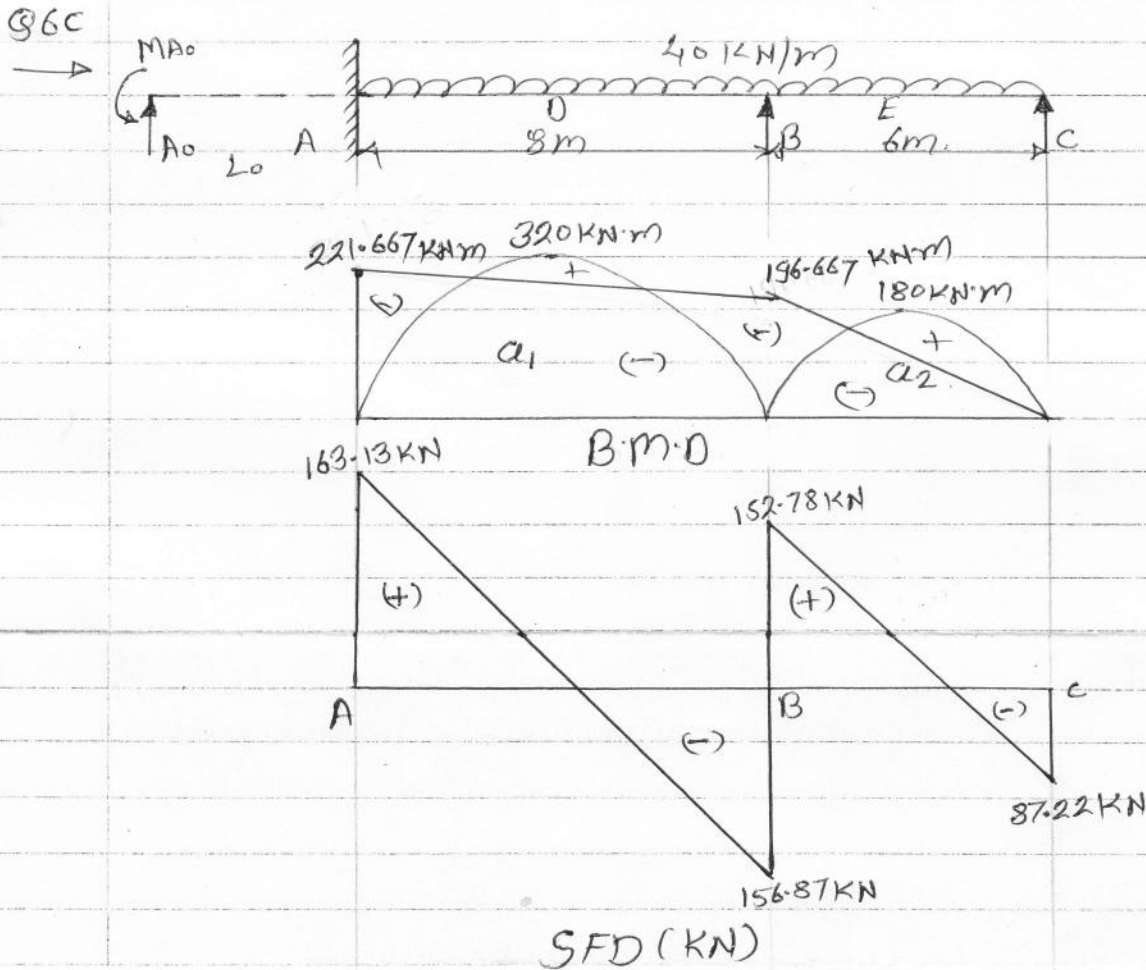 Q6C
MA0
40 KN/m
A0 L0 A D 8m B E 6m. C
221.667 KNM 320 KN.M 196.667 KN.M
180KN.M
(-) + (-) +
a1 (-) (-) a2
B.M.D
163.13 KN
152.78 KN
(+) (+)
A B C
(-) (-)
87.22 KN
156.87 KN
SFD (KN)